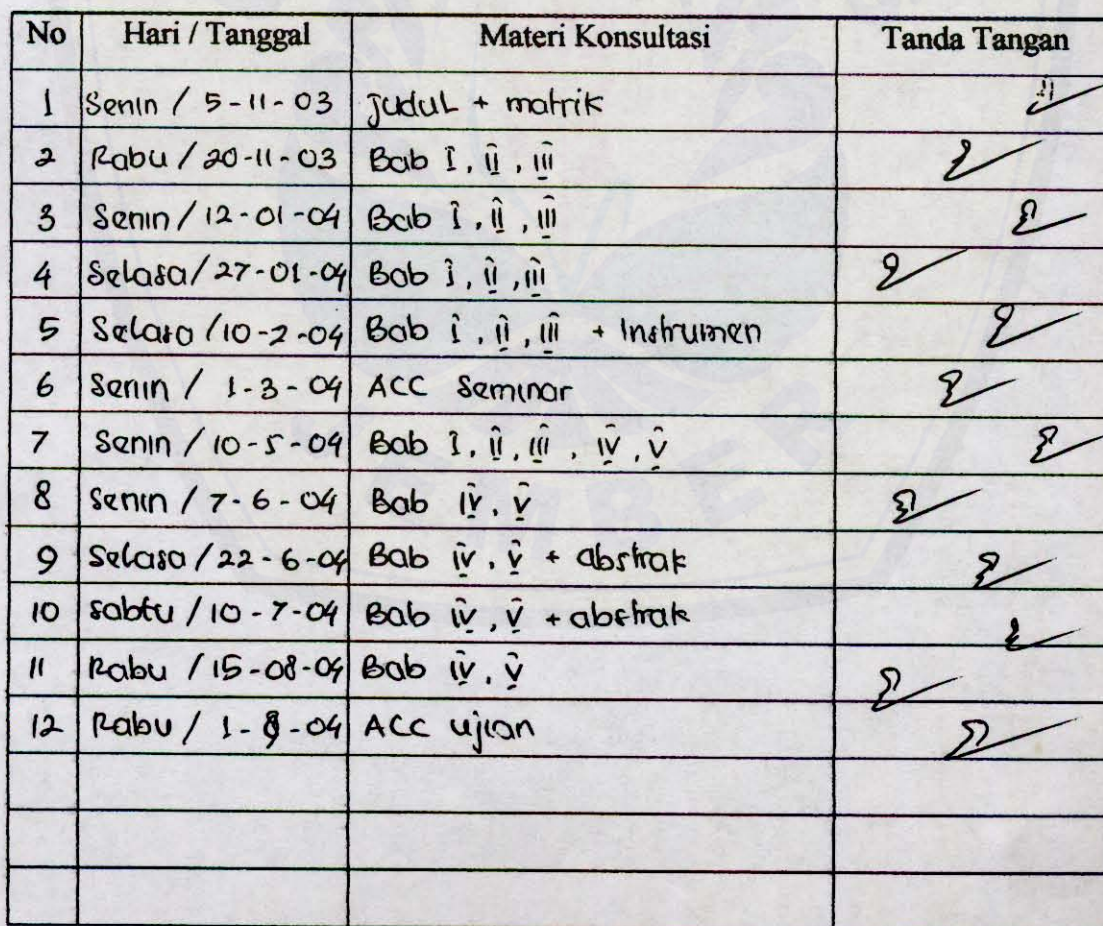 No Hari / Tanggal Materi Konsultasi Tanda Tangan
1 Senin / 5-11-03 Judul + matrik
2 Rabu / 20-11-03 Bab I, II, III
3 Senin / 12-01-04 Bab I, II, III
4 Selasa / 27-01-04 Bab I, II, III
5 Selasa / 10-2-04 Bab I, II, III + Instrumen
6 Senin / 1-3-04 ACC Seminar
7 Senin / 10-5-04 Bab I, II, III, IV, V
8 Senin / 7-6-04 Bab IV, V
9 Selasa / 22-6-04 Bab IV, V + abstrak
10 Sabtu / 10-7-04 Bab IV, V + abstrak
11 Rabu / 15-08-04 Bab IV, V
12 Rabu / ACC Ujian